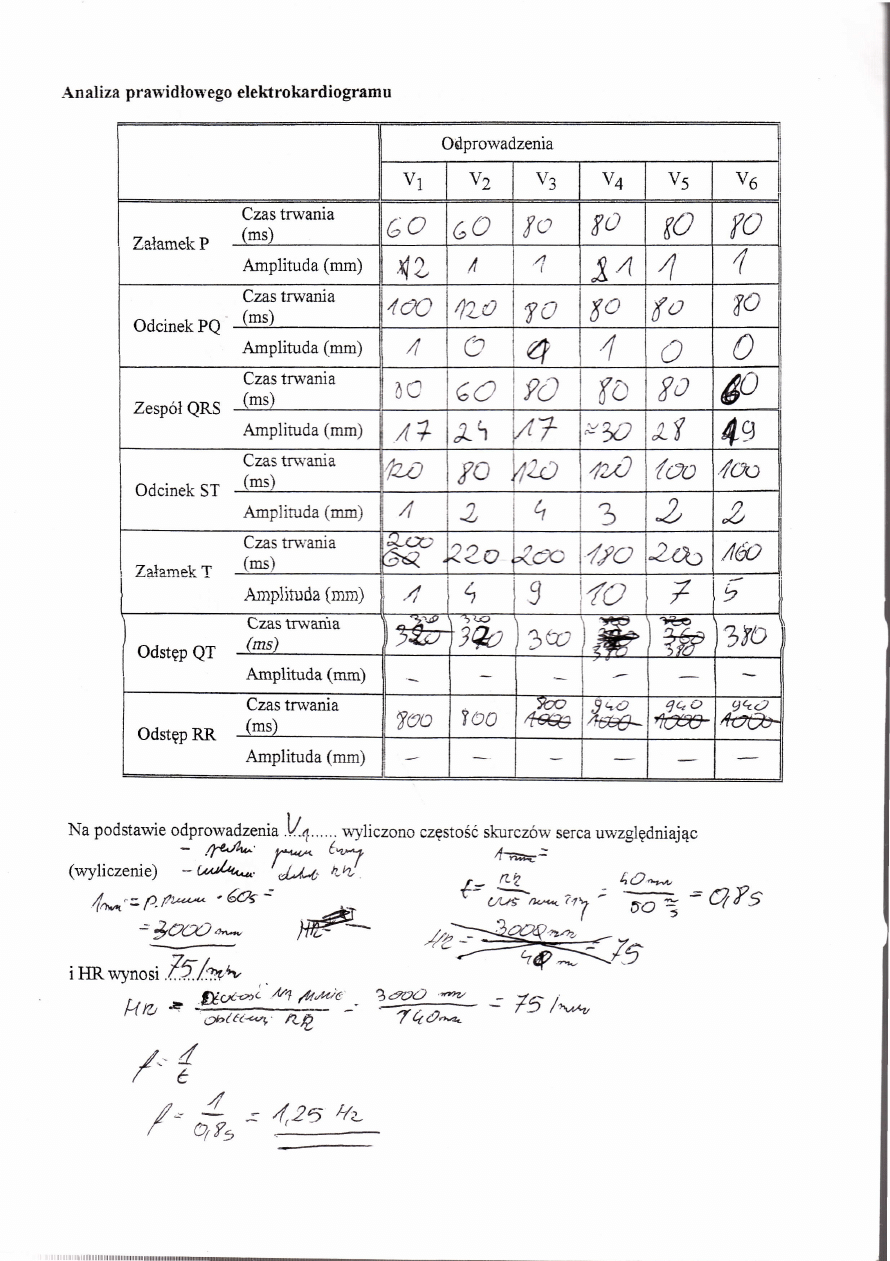 Analiza prawidłowego elektrokardiogramu
Odprowadzenia
V1 V2 V3 V4 V5 V6
Załamek P
Czas trwania (ms) 60 60 80 80 80 80
Amplituda (mm) 2 1 1 1 1 1
Odcinek PQ
Czas trwania (ms) 100 120 80 80 80 80
Amplituda (mm) 1 0 1 1 0 0
Zespół QRS
Czas trwania (ms) 80 60 80 80 80 60
Amplituda (mm) 17 24 17 ≈30 28 19
Odcinek ST
Czas trwania (ms) 120 80 120 120 100 100
Amplituda (mm) 1 2 4 3 2 2
Załamek T
Czas trwania (ms) 200 220 200 180 200 160
Amplituda (mm) 1 4 9 10 7 5
Odstęp QT
Czas trwania (ms) 320 320 360 380 380 380
Amplituda (mm) – – – – – –
Odstęp RR
Czas trwania (ms) 800 800 800 940 940 940
Amplituda (mm) – – – – – –
Na podstawie odprowadzenia V1 wyliczono częstość skurczów serca uwzględniając
(wyliczenie)
1min = p. przesuwu · 60s =
= 3000 mm
t = RR = 40mm / 50 mm/s = 0,8s
HR = 3000 mm / 40 mm = 75
i HR wynosi 75/min
HR = Długość na minie / RR = 3000 mm / 40mm = 75 /min
f = 1/t
f = 1/0,8s = 1,25 Hz